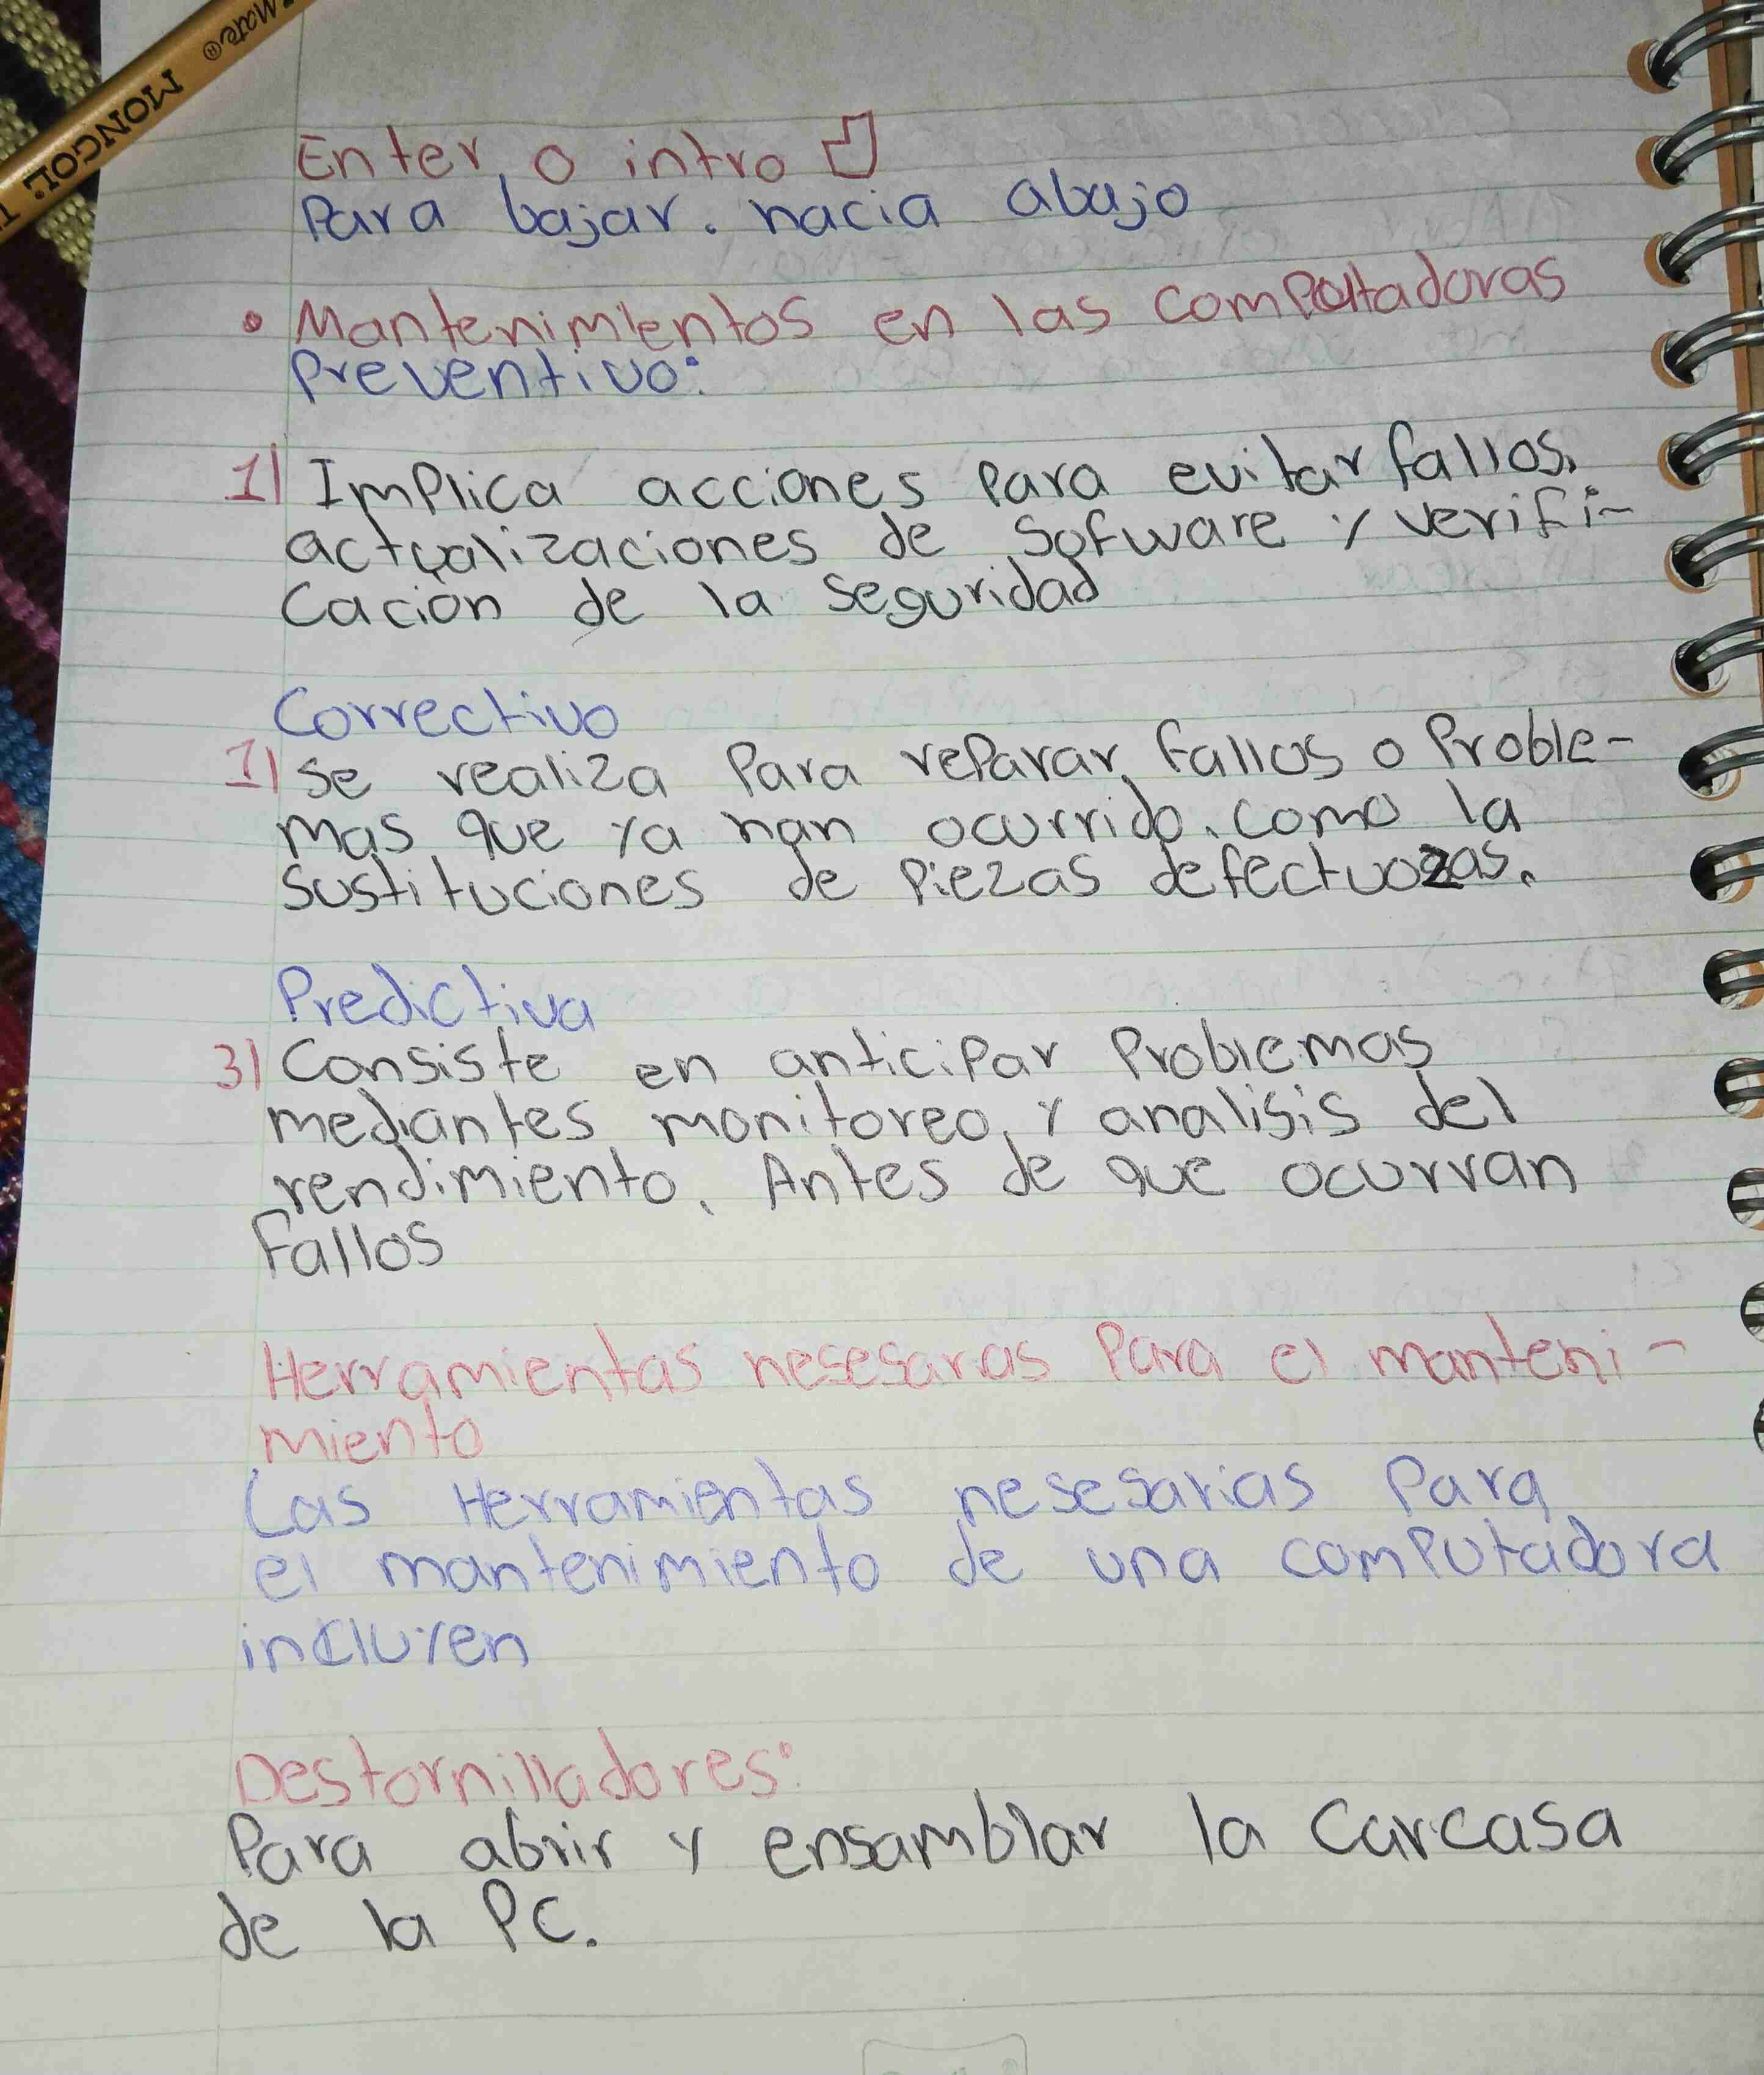 Mate®
MONGOL
Enter o intro
Para bajar. hacia abajo
• Mantenimientos en las compoltadoras
Preventivo:
1) Implica acciones para evitar fallos,
actualizaciones de sofware y verifi-
cacion de la seguridad
Correctivo
1) se realiza Para reparar fallos o Proble-
mas que ya han ocurrido, como la
sustituciones de piezas defectuozas.
Predictiva
3) Consiste en anticipar Problemas
mediantes monitoreo, y analisis del
rendimiento, Antes de que ocurran
Fallos
Herramientas nesesaras Para el manteni-
miento
Las Herramientas nesesarias Para
el mantenimiento de una computadora
incluyen
Destornilladores:
Para abrir y ensamblar la carcasa
de la PC.